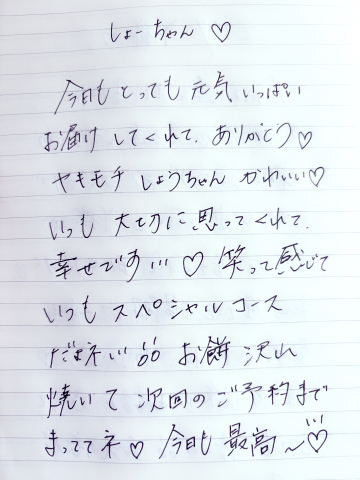 しょーちゃん ♡
今日も とっても 元気 いっぱい
お届け してくれて、ありがとう♡
ヤキモチ しょうちゃん かわいい♡
いつも 大切に 思ってくれて、
幸せです…♡ 笑って 感じて
いつも スペシャル コース
だよネ
お餅 沢山
焼いて 次回の ご予約まで
まっててネ♡ 今日も 最高〜♡